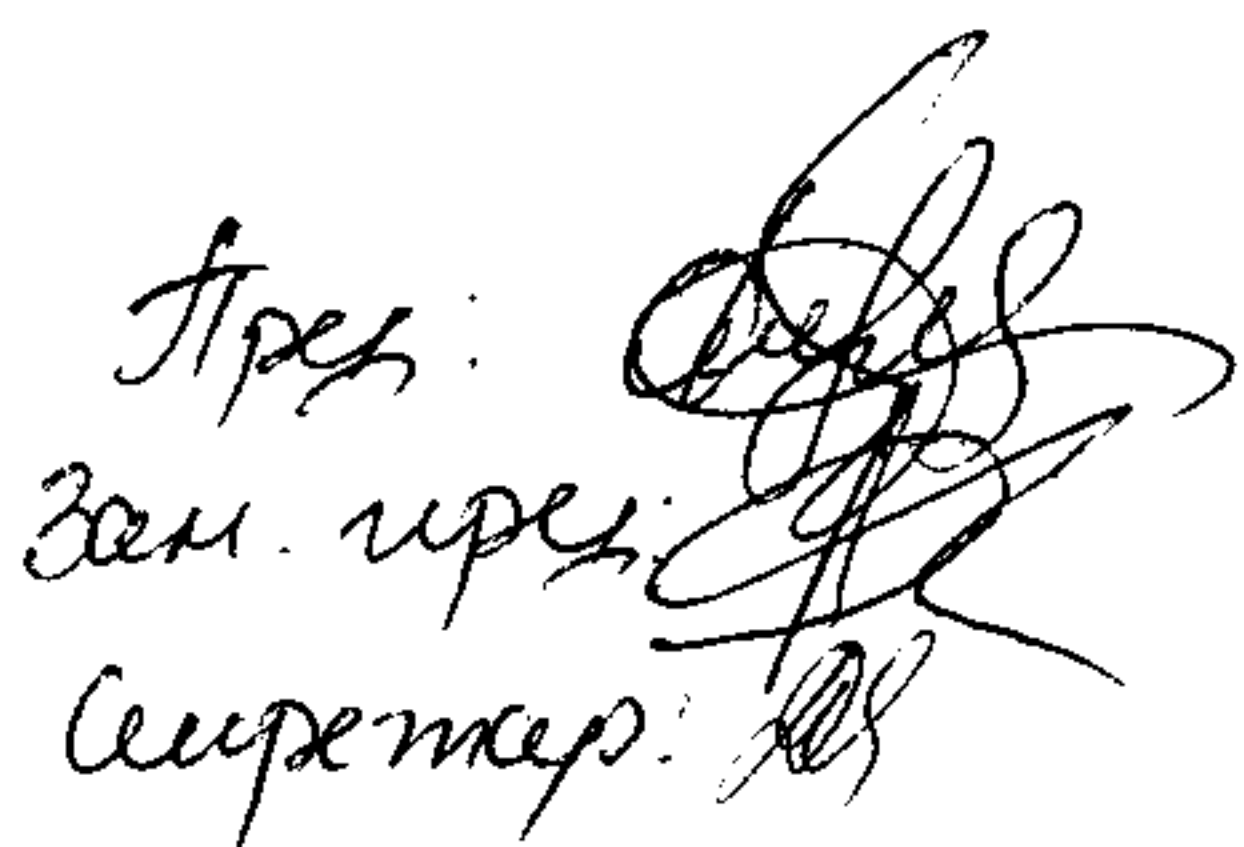 Пред:
Зам. пред:
Секретар: